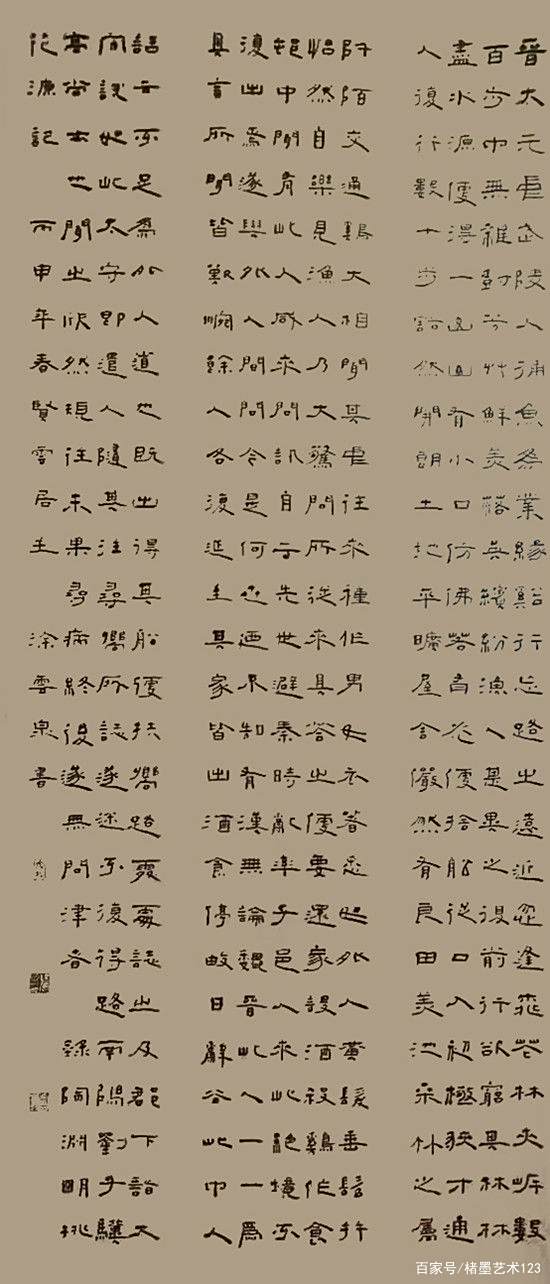 晉太元中武陵人捕魚為業緣谿行忘路之遠近忽逢桃花林夾岸數
百步中無雜樹芳艸鮮美落英繽紛漁人異之復前行欲窮其林林
盡水源便得一山山有小口仿佛若有光便捨船從口入初極狹才通
人復行數十步豁然開朗土地平曠屋舍儼然有良田美池桑竹之屬
阡陌交通雞犬相聞其中往來種作男女衣著悉如外人黃髮垂髫并
怡然自樂見漁人乃大驚問所從來具答之便要還家設酒殺雞作食
邨中聞有此人咸來問訊自云先世避秦時亂率子邑人來此絕境不
復出焉遂與外人間問今是何世迺不知有漢無論魏晉此人一一為
具言所聞皆歎惋餘人各復延至其家皆出酒食停數日辭去此中人
語云不足為外人道也既出得其船便扶嚮路處處誌之及郡下詣太
說如此太守即遣人隨其往尋嚮所誌遂迷不復得路南陽劉子驥
高尚士也聞之欣然規往未果尋病終後遂無問津者錄陶淵明桃
花源記丙申年春賢雲居主涂雲泉書
百家号/楮墨艺术123